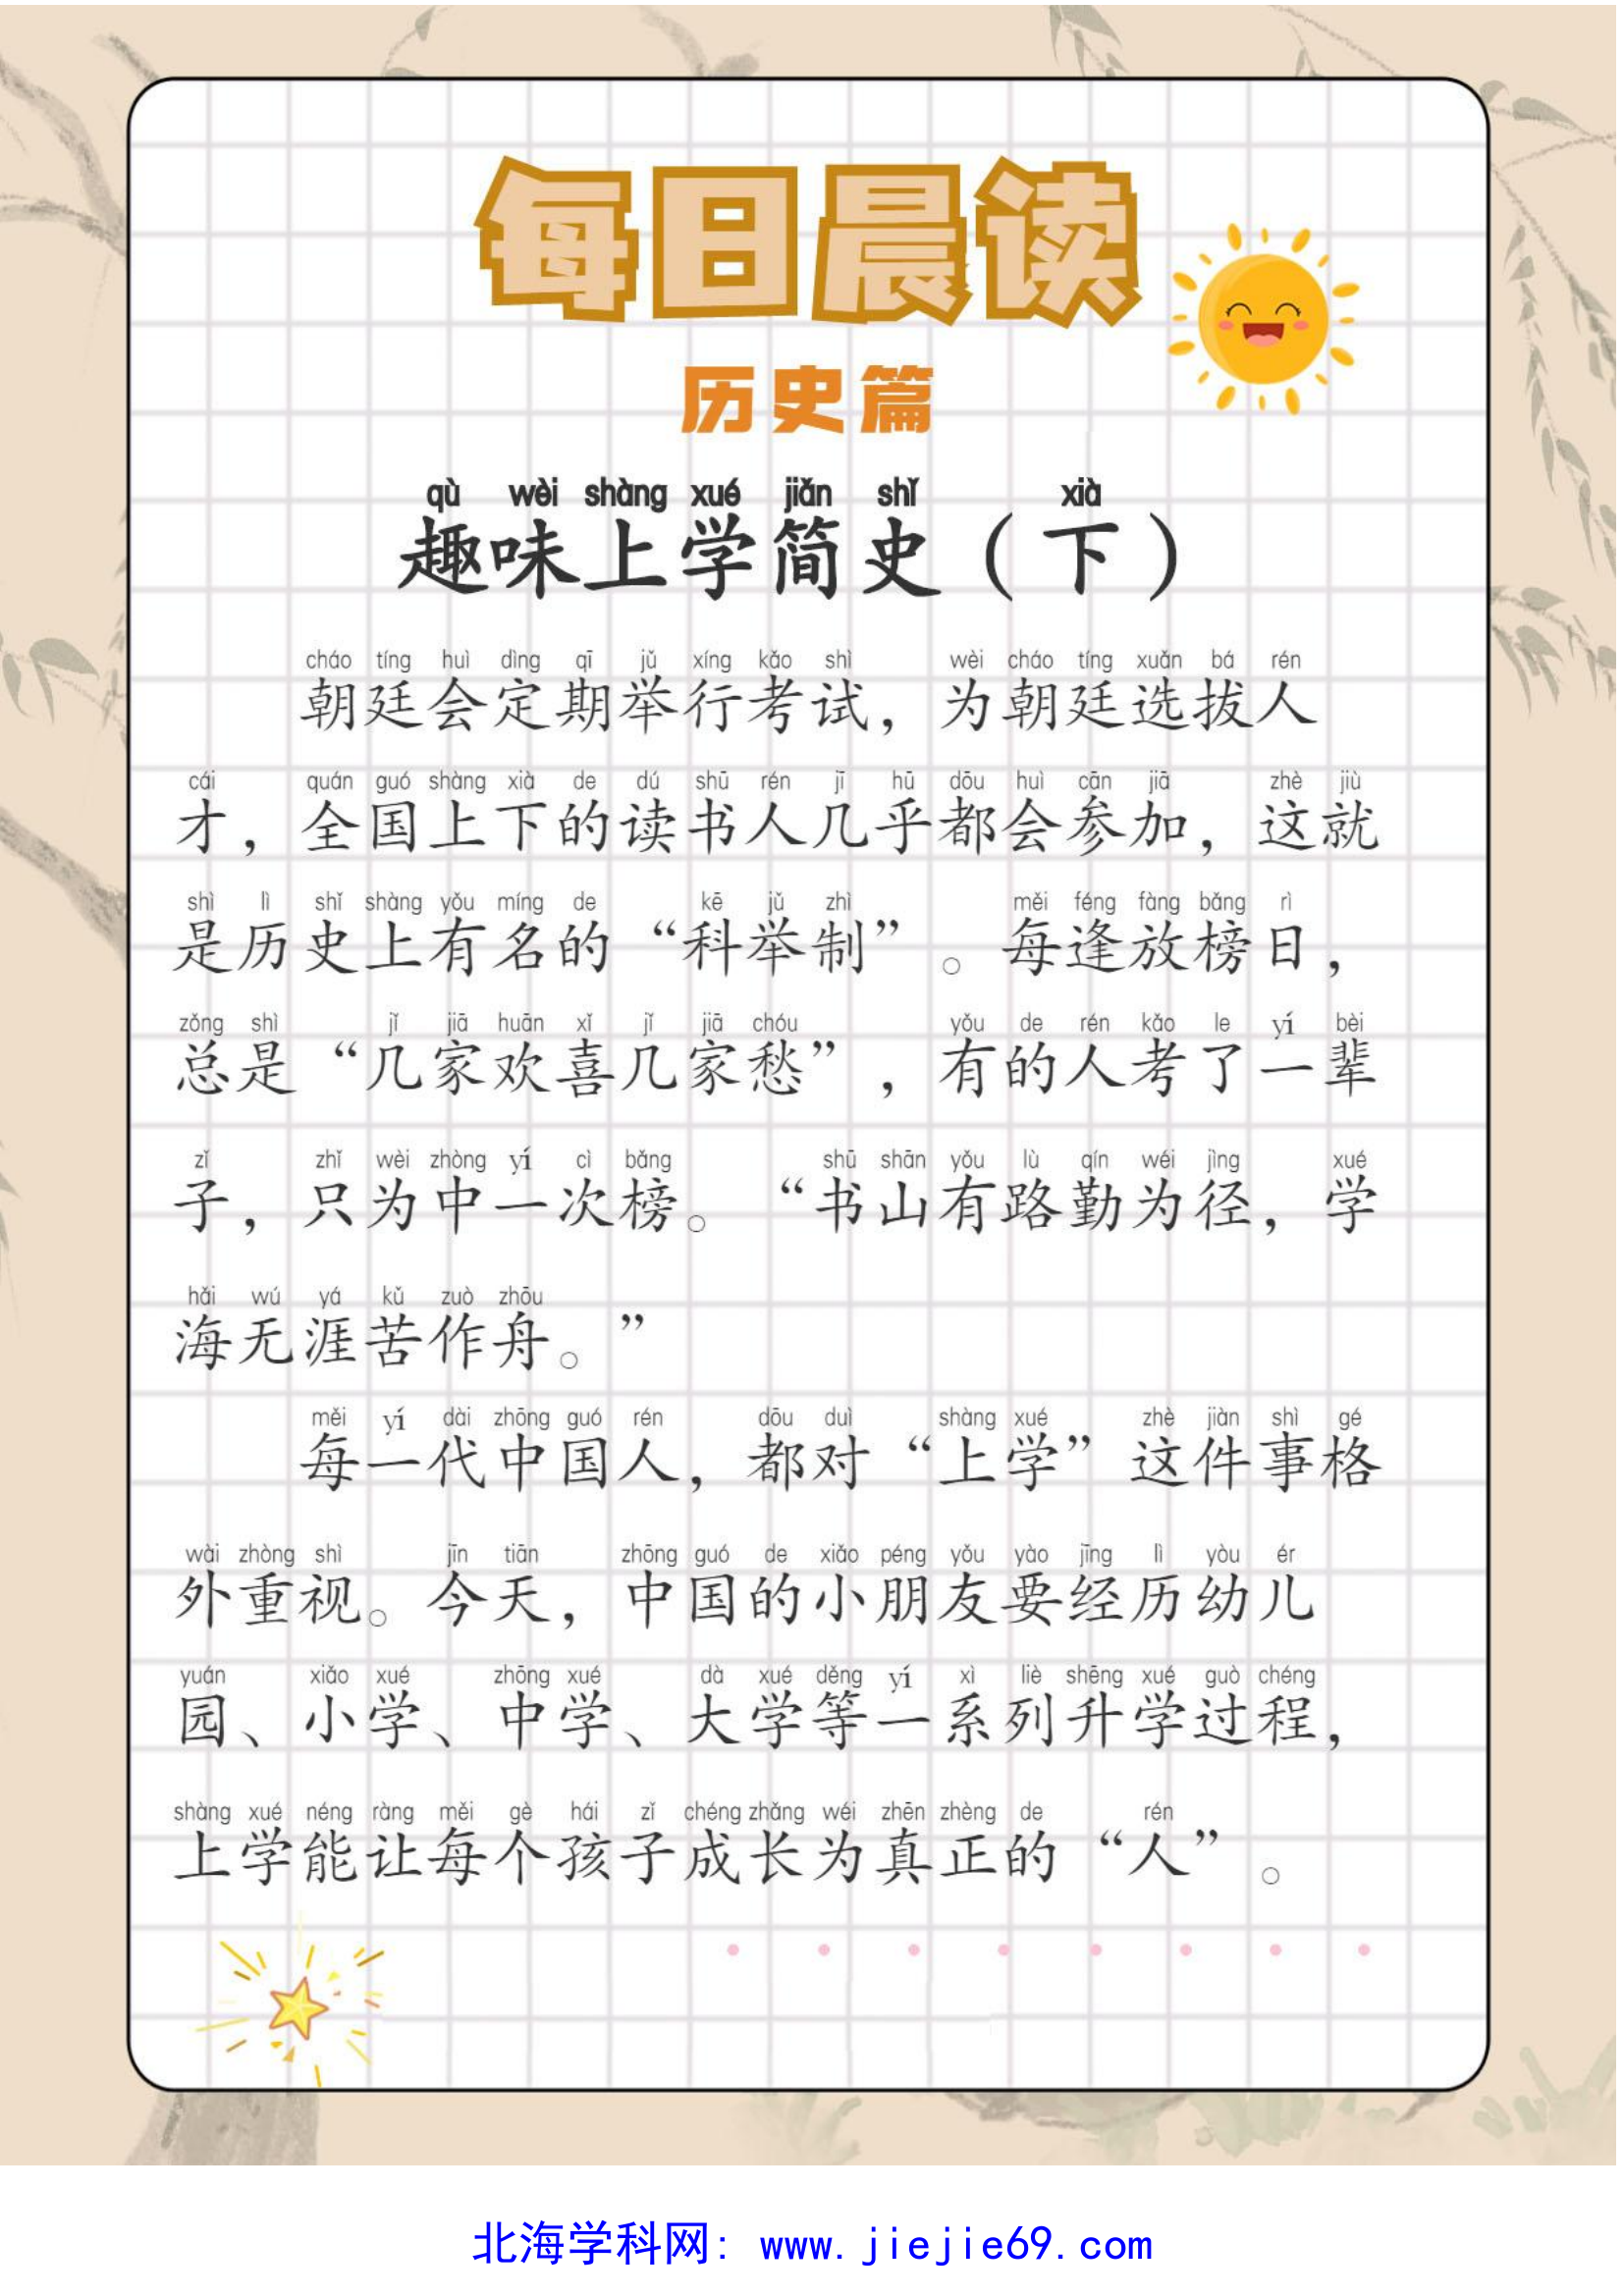 每日晨读
历史篇
qù wèi shàng xué jiǎn shǐ xià
趣味上学简史（下）
cháo tíng huì dìng qī jǔ xíng kǎo shì wèi cháo tíng xuǎn bá rén
朝廷会定期举行考试，为朝廷选拔人
cái quán guó shàng xià de dú shū rén jī hū dōu huì cān jiā zhè jiù
才，全国上下的读书人几乎都会参加，这就
shì lì shǐ shàng yǒu míng de kē jǔ zhì měi féng fàng bǎng rì
是历史上有名的“科举制”。每逢放榜日，
zǒng shì jǐ jiā huān xǐ jǐ jiā chóu yǒu de rén kǎo le yí bèi
总是“几家欢喜几家愁”，有的人考了一辈
zǐ zhǐ wèi zhòng yí cì bǎng shū shān yǒu lù qín wéi jìng xué
子，只为中一次榜。“书山有路勤为径，学
hǎi wú yá kǔ zuò zhōu
海无涯苦作舟。”
měi yí dài zhōng guó rén dōu duì shàng xué zhè jiàn shì gé
每一代中国人，都对“上学”这件事格
wài zhòng shì jīn tiān zhōng guó de xiǎo péng yǒu yào jīng lì yòu ér
外重视。今天，中国的小朋友要经历幼儿
yuán xiǎo xué zhōng xué dà xué děng yí xì liè shēng xué guò chéng
园、小学、中学、大学等一系列升学过程，
shàng xué néng ràng měi gè hái zǐ chéng zhǎng wéi zhēn zhèng de rén
上学能让每个孩子成长为真正的“人”。
北海学科网：www.jiejie69.com